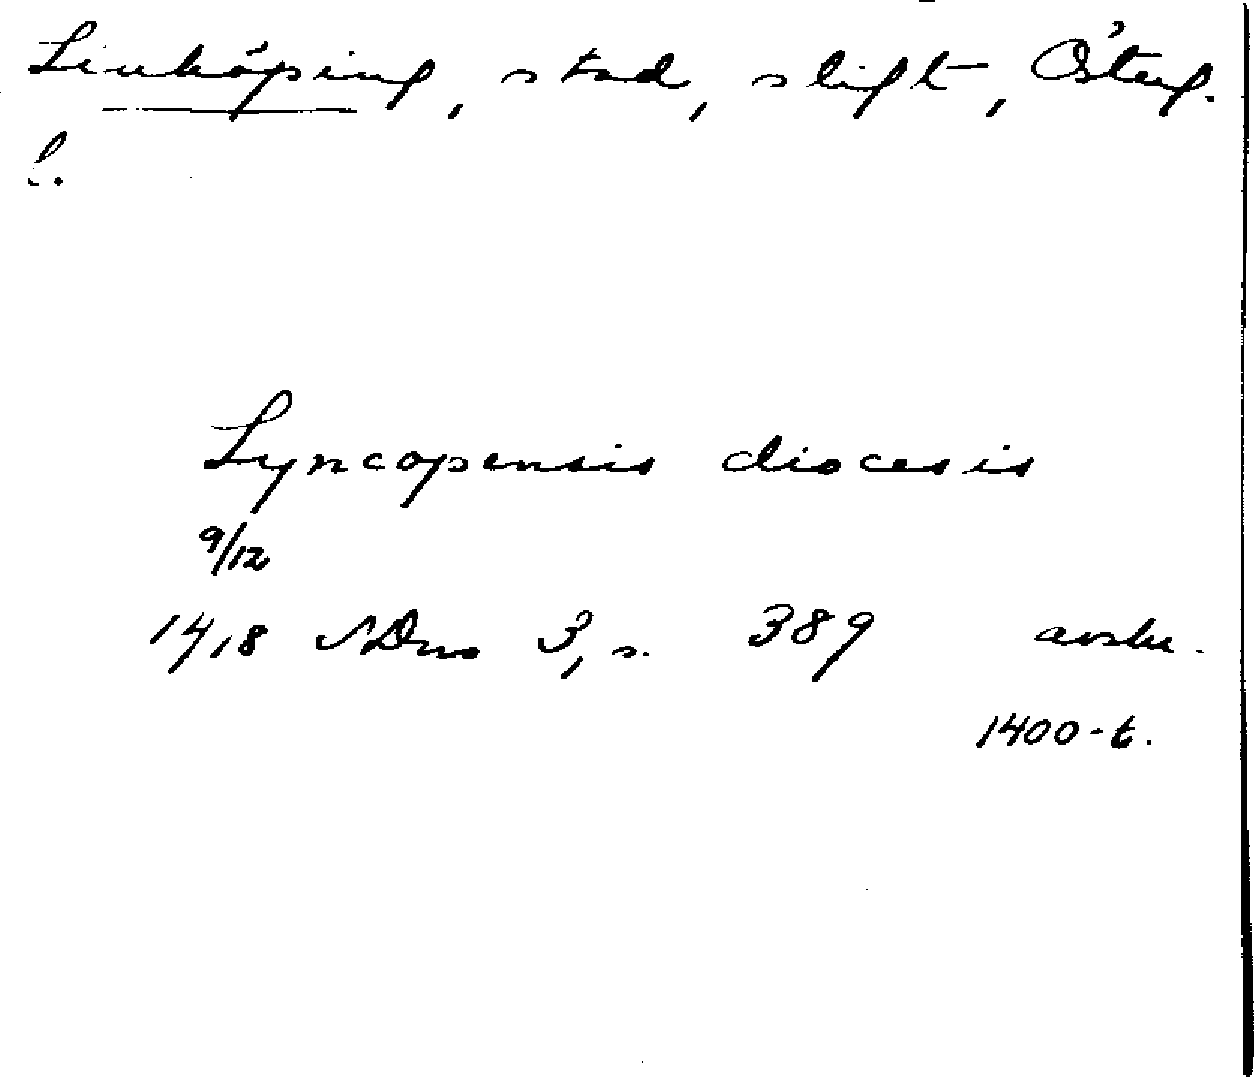 Linköping, stad, stift, Österg.
l.
Lyncopensis diocesis
9/12
1418 SDns 3, s. 389 avskr.
1400-t.